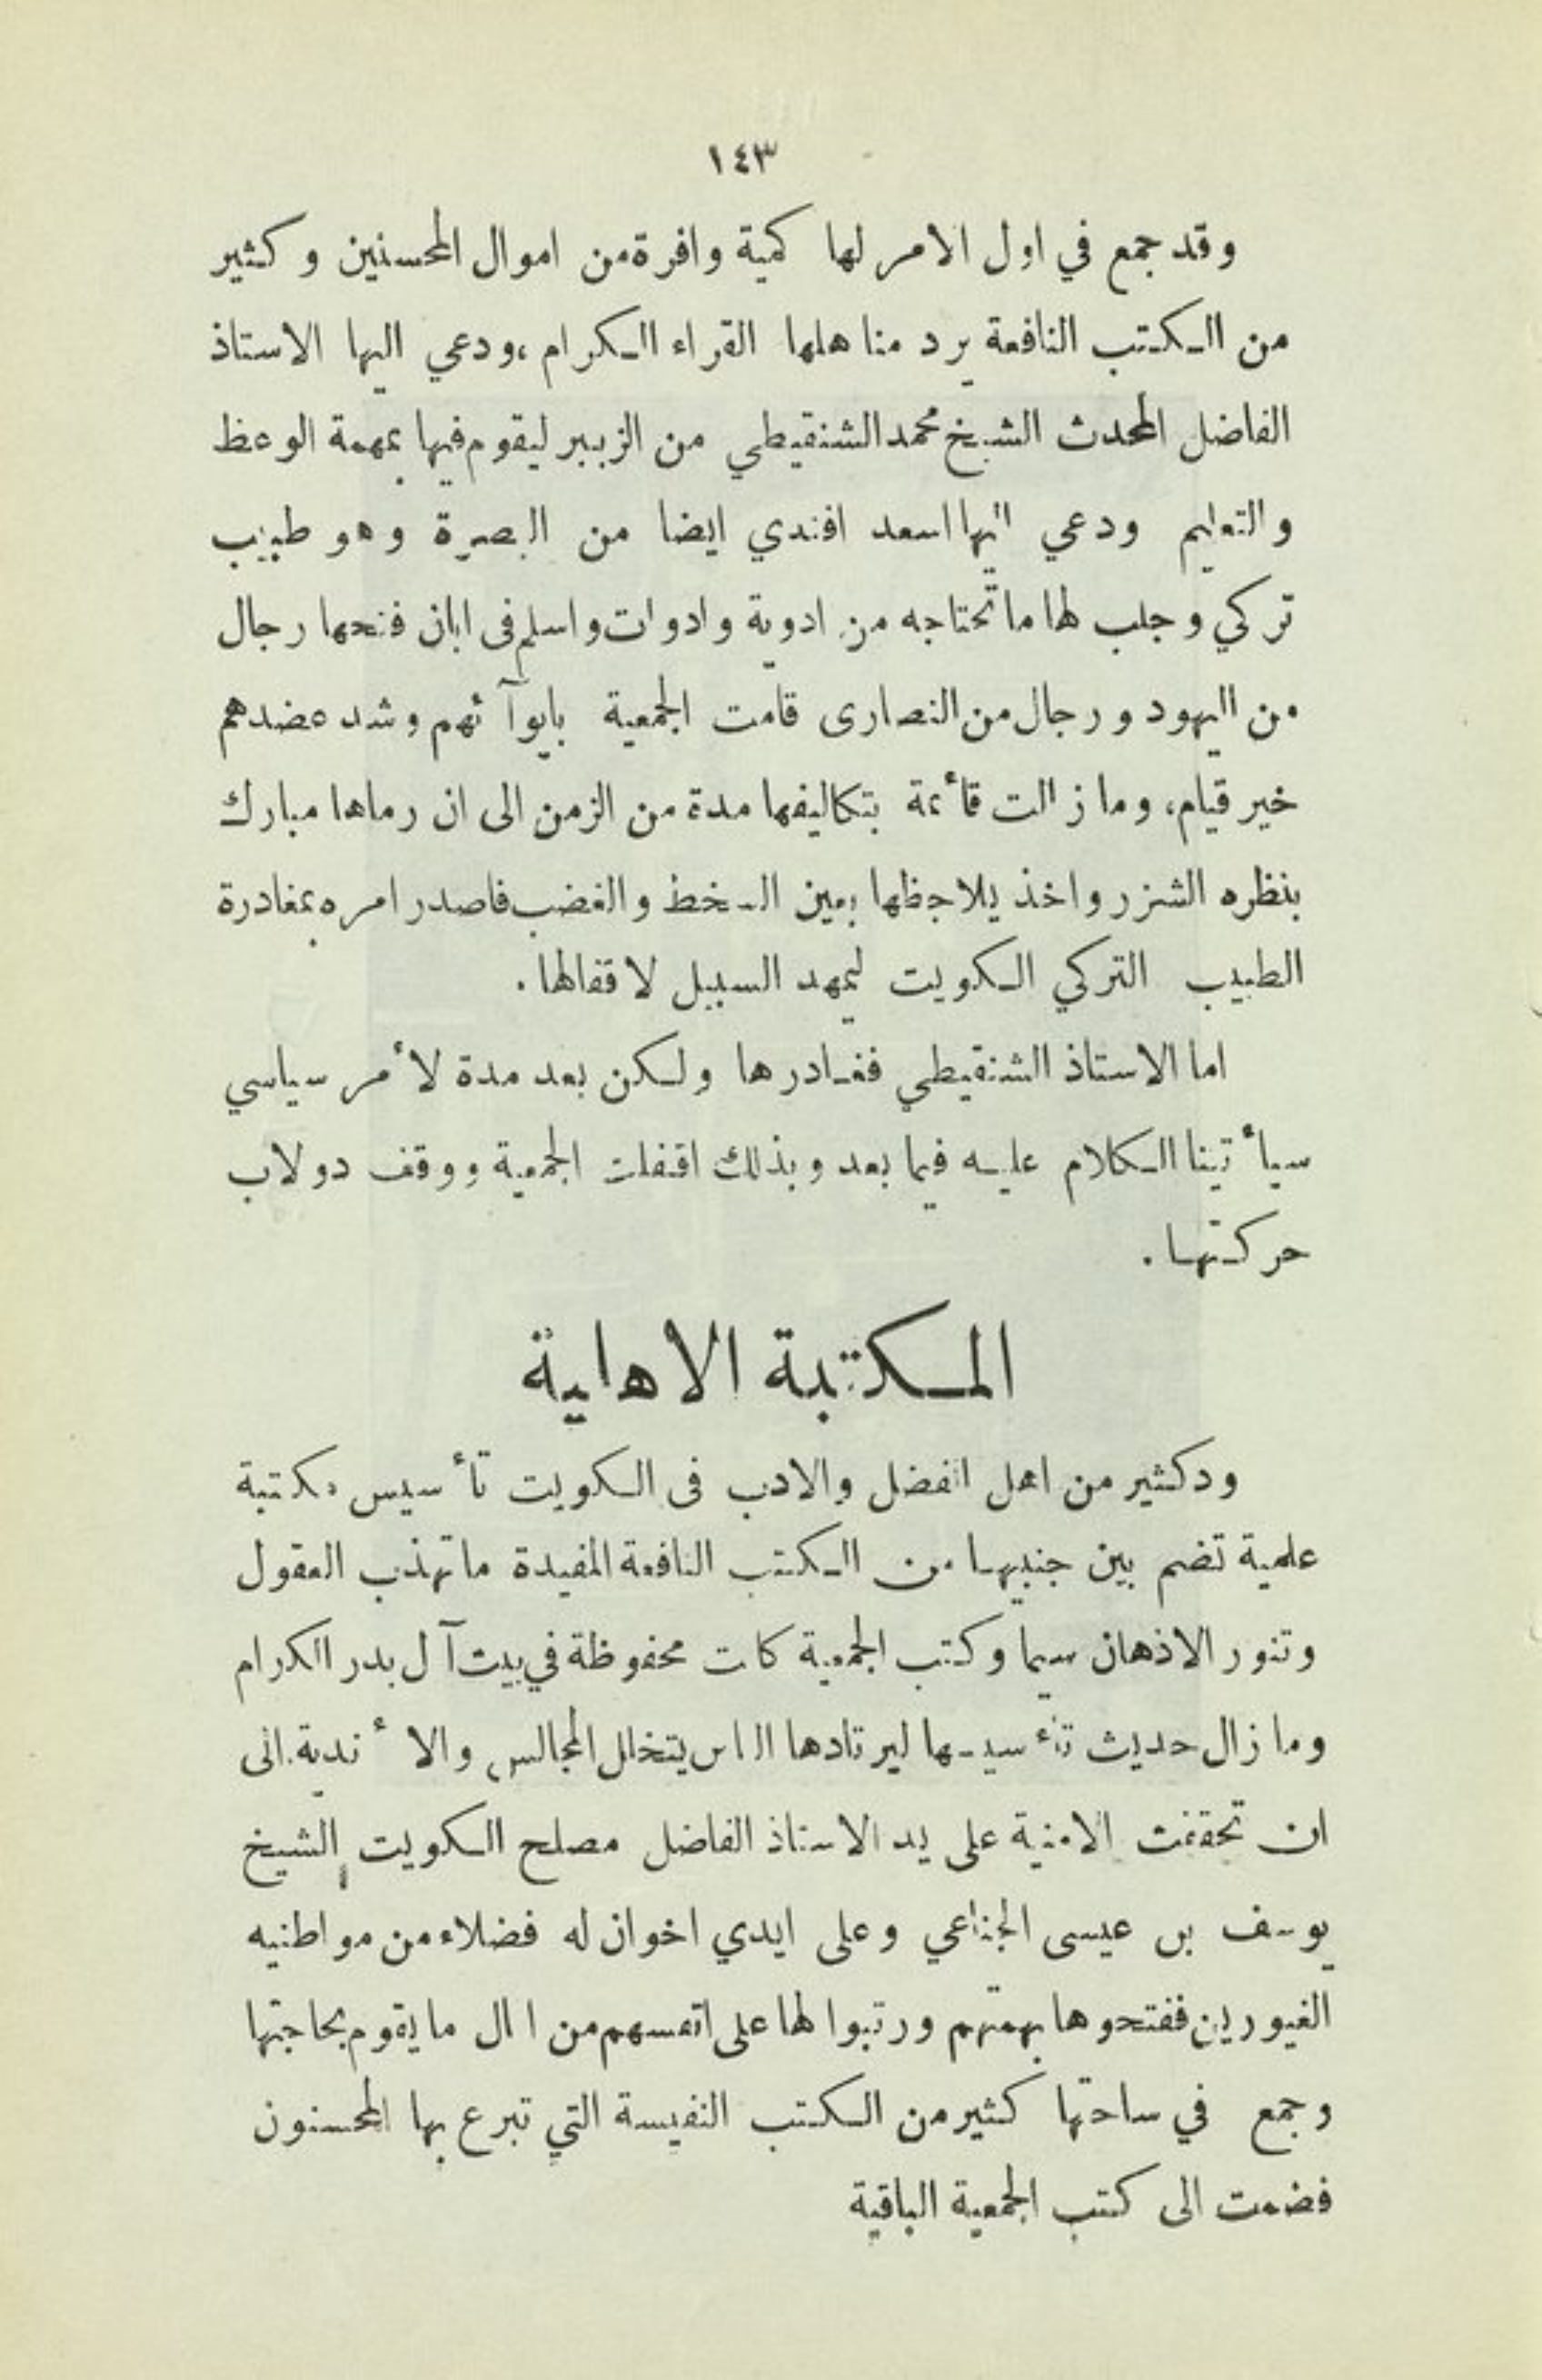 ١٤٣
وقد جمع في اول الامر لها كمية وافرة من اموال المحسنين وكثير
من الكتب النافعة يرد مناهلها القراء الكرام ،ودعي اليها الاستاذ
الفاضل المحدث الشيخ محمد الشنقيطي من الزبير ليقوم فيها بمهمة الوعظ
والتعليم ودعي اليها اسعد افندي ايضا من البصرة وهو طبيب
تركي وجلب لها ما تحتاجه من ادوية وادوات واسلم في ابان فتحها رجال
من اليهود ورجال من النصارى قامت الجمعية بايوآئهم وشد عضدهم
خير قيام، وما زالت قأئمة بتكاليفها مدة من الزمن الى ان رماها مبارك
بنظره الشزر واخذ يلاحظها بعين السخط والغضب فاصدر امره بمغادرة
الطبيب التركي الكويت ليمهد السبيل لاقفالها.
اما الاستاذ الشنقيطي فغادرها ولكن بعد مدة لأمر سياسي
سيأتينا الكلام عليه فيما بعد وبذلك اقفلت الجمعية ووقف دولاب
حركتها.
المكتبة الاهلية
ود كثير من اهل الفضل والادب فى الكويت تأسيس مكتبة
علمية تضم بين جنبيها من الكتب النافعة المفيدة ما تهذب العقول
وتنور الاذهان سيما وكتب الجمعية كانت محفوظة في بيت آل بدر الكرام
وما زال حديث تأسيسها ليرتادها الناس يتخلل المجالس والأندية الى
ان تحققت الامنية على يد الاستاذ الفاضل مصلح الكويت الشيخ
يوسف بن عيسى الجناعي وعلى ايدي اخوان له فضلاء من مواطنيه
الغيورين ففتحوها بهمتهم ورتبوا لها على انفسهم من المال ما يقوم بحاجتها
وجمع في ساحتها كثير من الكتب النفيسة التي تبرع بها المحسنون
فضمت الى كتب الجمعية الباقية